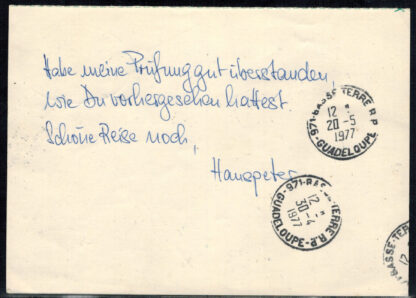 Habe meine Prüfung gut überstanden,
wie Du vorhergesehen hattest.
Schöne Reise noch,
Hanspeter
971-BASSE-TERRE R.P.
12 H
20-5
1977
GUADELOUPE
971-BASSE-TERRE R.P.
12 H
30-4
1977
GUADELOUPE
BASSE-TERRE
12